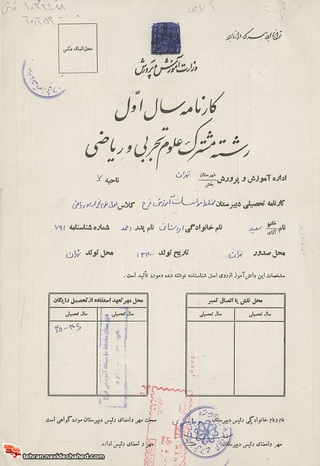 محل الصاق عکس
وزارت آموزش و پرورش
کارنامه سال اول
رشته مشترک علوم تجربی و ریاضی
اداره آموزش و پرورش شهرستان بخش تهران ناحیه
کارنامه تحصیلی دبیرستان مختلط مؤسسات آموزشی فرخ کلاس اول علوم تجربی و ریاضی
نام خانم آقای سعید نام خانوادگی نام پدر احمد شماره شناسنامه ۷۹۱
محل صدور تهران تاریخ تولد ۱۳۴۰ محل تولد تهران
مشخصات این دانش‌آموز از روی اصل شناسنامه نوشته شده و مورد تأئید است.
محل نقش یا الصاق تمبر
محل مهر تعهد استفاده از تحصیل رایگان
سال تحصیلی
سال تحصیلی
سال تحصیلی
سال تحصیلی
۳۵-۳۶
نام و نام خانوادگی رئیس دبیرستان
صحت مهر و امضای رئیس دبیرستان مورد گواهی است
مهر و امضای رئیس دبیرستان
مهر و امضای رئیس اداره
tehran.navideshahed.com